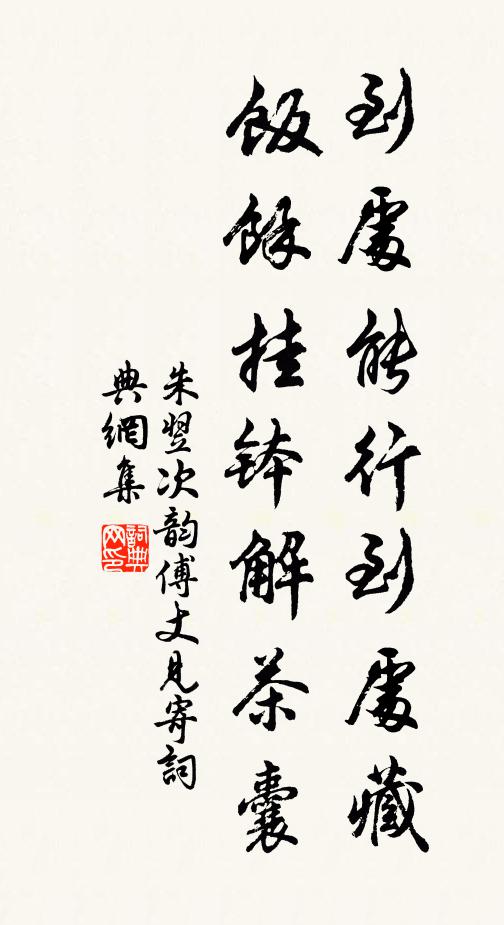 到處能行到處藏
飯餘挂鉢解茶囊
朱翌次韵傅丈見寄詞
典網集
詞典网印